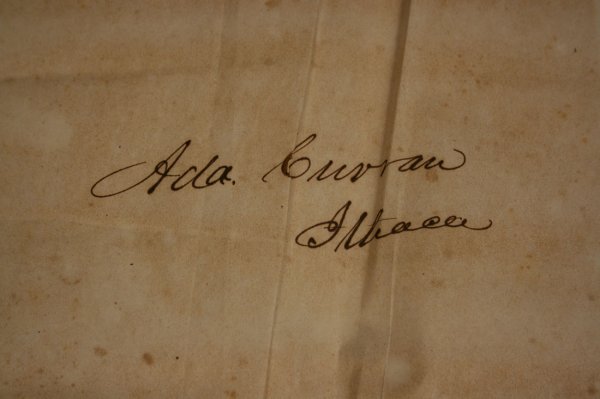 Ada. Curran
Ithaca